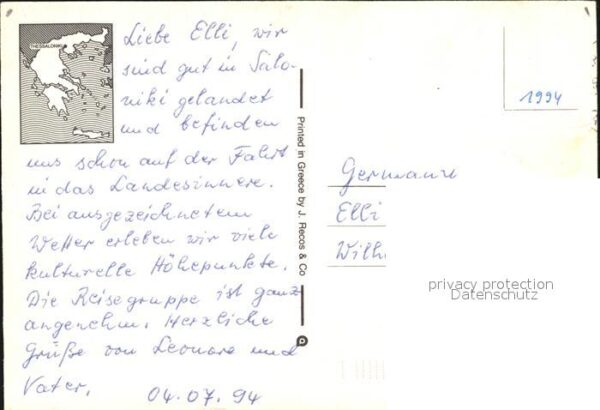 THESSALONIKI
Liebe Elli, wir
sind gut in Salo-
niki gelandet
und befinden
uns schon auf der Fahrt
in das Landesinnere.
Bei ausgezeichnetem
Wetter erleben wir viele
kulturelle Höhepunkte.
Die Reisegruppe ist ganz
angenehm. Herzliche
Grüße von Leonore und
Vater.
04.07.94
Printed in Greece by J. Recos & Co
1994
Germany
Elli
Wilh
privacy protection
Datenschutz